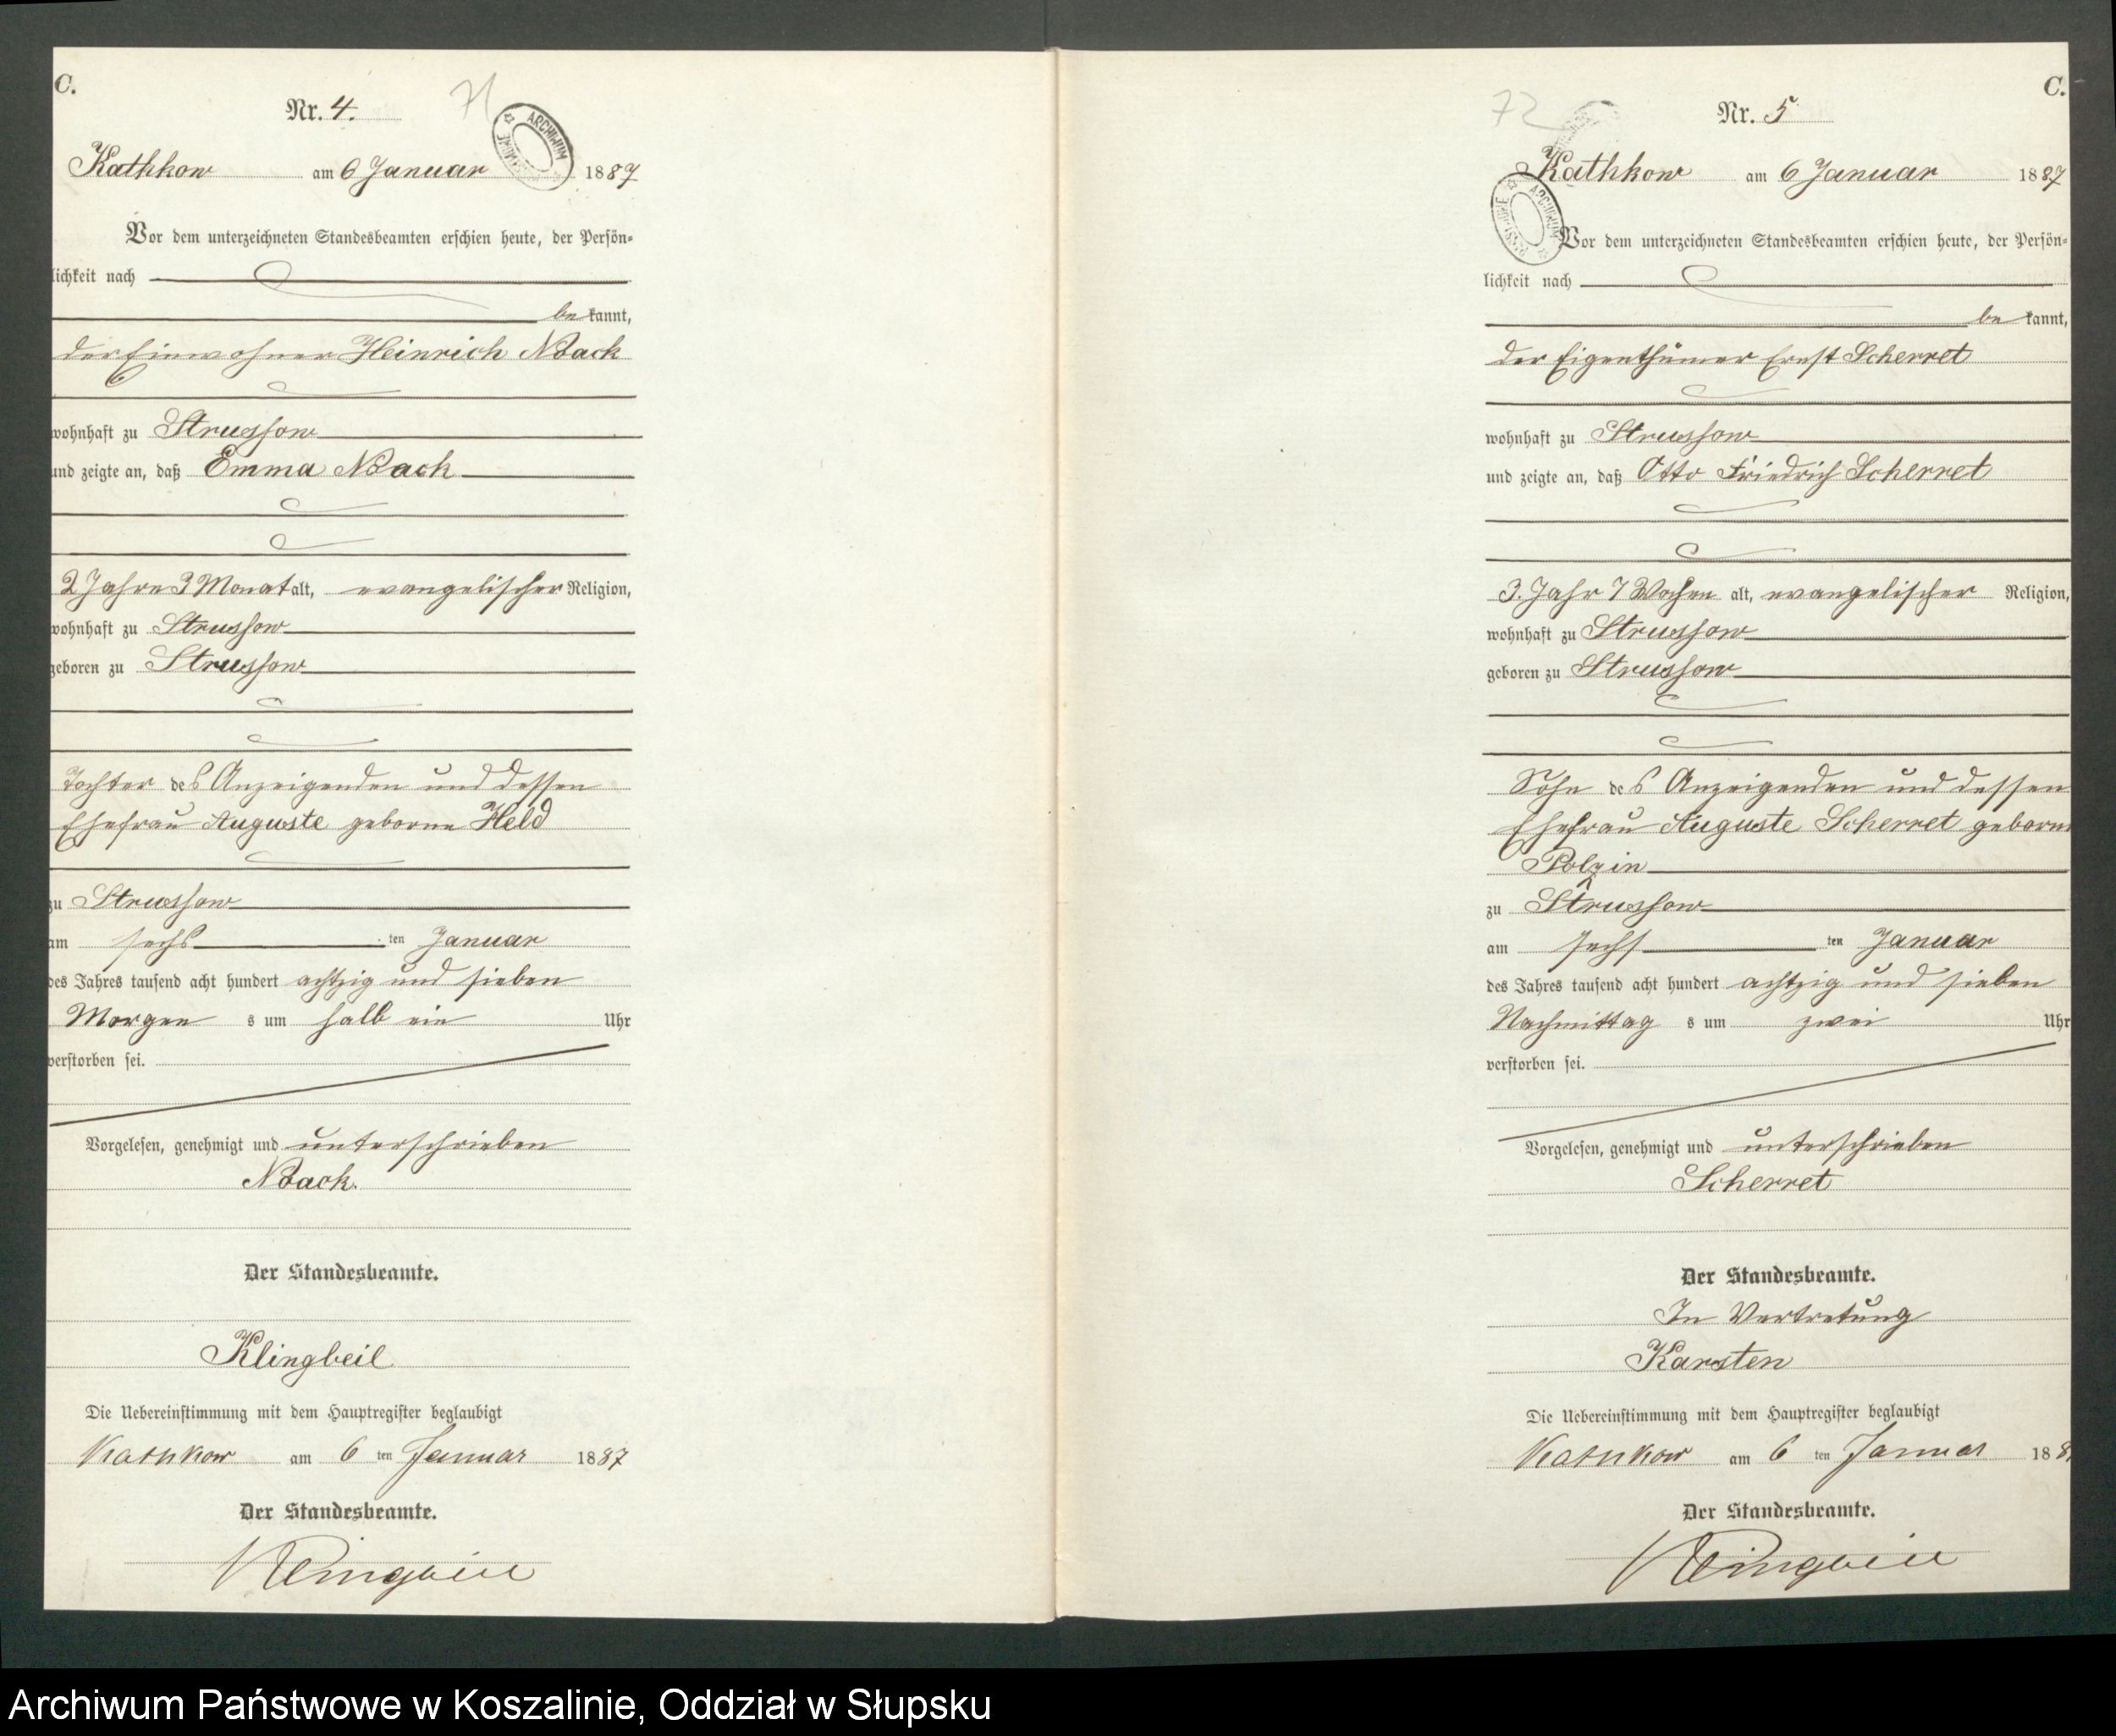 C.
Nr. 4.
71
ARCHIWUM
Kathkow am 6 Januar 1887
Vor dem unterzeichneten Standesbeamten erschien heute, der Persön-
lichkeit nach
be kannt,
der Einwohner Heinrich Noack
wohnhaft zu Strussow
und zeigte an, daß Emma Noack
2 Jahre 3 Monat alt, evangelischer Religion,
wohnhaft zu Strussow
geboren zu Strussow
Tochter des Anzeigenden und dessen
Ehefrau Auguste geborne Held
zu Strussow
am sechs ten Januar
des Jahres tausend acht hundert achtzig und sieben
Morgen s um halb ein Uhr
verstorben sei.
Vorgelesen, genehmigt und unterschrieben
Noack.
Der Standesbeamte.
Klingbeil
Die Uebereinstimmung mit dem Hauptregister beglaubigt
Kathkow am 6 ten Januar 1887
Der Standesbeamte.
Klingbeil
C.
Nr. 5
72
ARCHIWUM
Kathkow am 6 Januar 1887
Vor dem unterzeichneten Standesbeamten erschien heute, der Persön-
lichkeit nach
be kannt,
der Eigenthümer Ernst Scherret
wohnhaft zu Strussow
und zeigte an, daß Otto Friedrich Scherret
3. Jahr 7 Wochen alt, evangelischer Religion,
wohnhaft zu Strussow
geboren zu Strussow
Sohn des Anzeigenden und dessen
Ehefrau Auguste Scherret geborne
Polzin
zu Strussow
am sechs ten Januar
des Jahres tausend acht hundert achtzig und sieben
Nachmittag s um zwei Uhr
verstorben sei.
Vorgelesen, genehmigt und unterschrieben
Scherret
Der Standesbeamte.
In Vertretung
Karsten
Die Uebereinstimmung mit dem Hauptregister beglaubigt
Kathkow am 6 ten Januar 188
Der Standesbeamte.
Klingbeil
Archiwum Państwowe w Koszalinie, Oddział w Słupsku